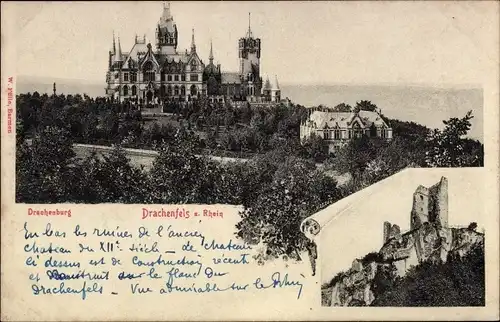 W. Fülle, Barmen
Drachenburg
Drachenfels a. Rhein
En bas les ruines de l'ancien
chateau du XIIe siècle - le chateau
ci dessus est de construction récente
et construit sur le flanc du
Drachenfels - Vue admirable sur le Rhin,